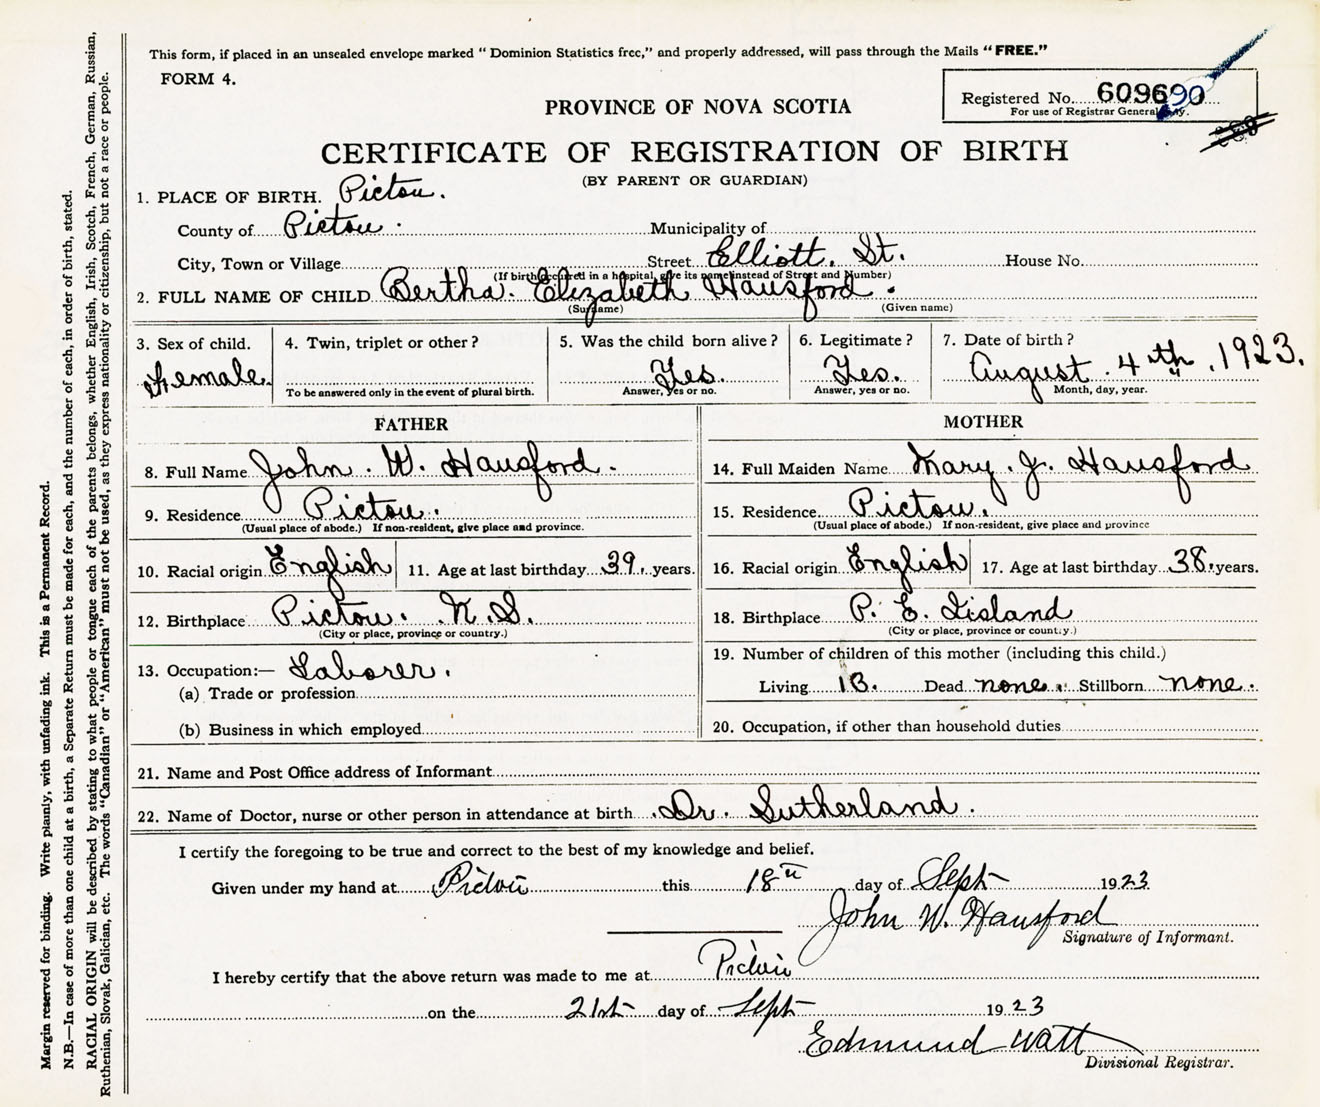 This form, if placed in an unsealed envelope marked "Dominion Statistics free," and properly addressed, will pass through the Mails "FREE."
FORM 4.
Registered No. 609690
For use of Registrar General only.
PROVINCE OF NOVA SCOTIA
CERTIFICATE OF REGISTRATION OF BIRTH
(BY PARENT OR GUARDIAN)
1. PLACE OF BIRTH. Pictou.
County of Pictou. Municipality of
City, Town or Village Street Elliott. St. House No.
(If birth occurred in a hospital, give its name instead of Street and Number)
2. FULL NAME OF CHILD Bertha. Elizabeth Hausford.
(Surname) (Given name)
3. Sex of child. 4. Twin, triplet or other? 5. Was the child born alive? 6. Legitimate? 7. Date of birth?
Female. Yes. Yes. August. 4th, 1923.
To be answered only in the event of plural birth. Answer, yes or no. Answer, yes or no. Month, day, year.
FATHER MOTHER
8. Full Name John. W. Hausford. 14. Full Maiden Name Mary. J. Hausford
9. Residence Pictou. 15. Residence Pictou.
(Usual place of abode.) If non-resident, give place and province. (Usual place of abode.) If non-resident, give place and province
10. Racial origin English 11. Age at last birthday 39. years. 16. Racial origin English 17. Age at last birthday 38. years.
12. Birthplace Pictou. N. S. 18. Birthplace P. E. Iisland
(City or place, province or country.) (City or place, province or country.)
13. Occupation:— Laborer. 19. Number of children of this mother (including this child.)
(a) Trade or profession Living 13. Dead none. Stillborn none.
(b) Business in which employed 20. Occupation, if other than household duties
21. Name and Post Office address of Informant
22. Name of Doctor, nurse or other person in attendance at birth Dr. Sutherland.
I certify the foregoing to be true and correct to the best of my knowledge and belief.
Given under my hand at Pictou this 18th day of Sept 1923
John W. Hausford
Signature of Informant.
I hereby certify that the above return was made to me at Pictou
on the 21st day of Sept 1923
Edmund Watt
Divisional Registrar.
Margin reserved for binding. Write plainly, with unfading ink. This is a Permanent Record.
N.B.—In case of more than one child at a birth, a Separate Return must be made for each, and the number of each, in order of birth, stated.
RACIAL ORIGIN will be described by stating to what people or tongue each of the parents belongs, whether English, Irish, Scotch, French, German, Russian,
Ruthenian, Slovak, Galician, etc. The words "Canadian" or "American" must not be used, as they express nationality or citizenship, but not a race or people.